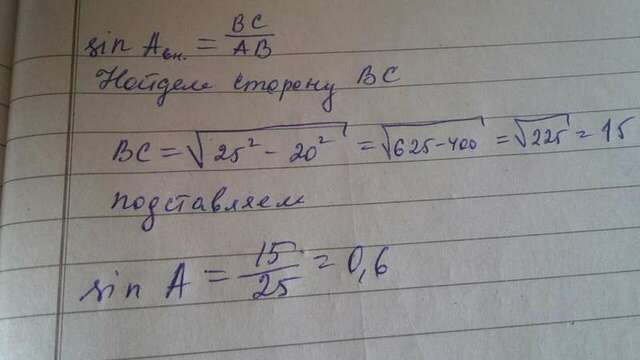 sin Aвн. = BC/AB
Найдем сторону BC
BC = √25² - 20² = √625-400 = √225 = 15
подставляем
sin A = 15/25 = 0,6